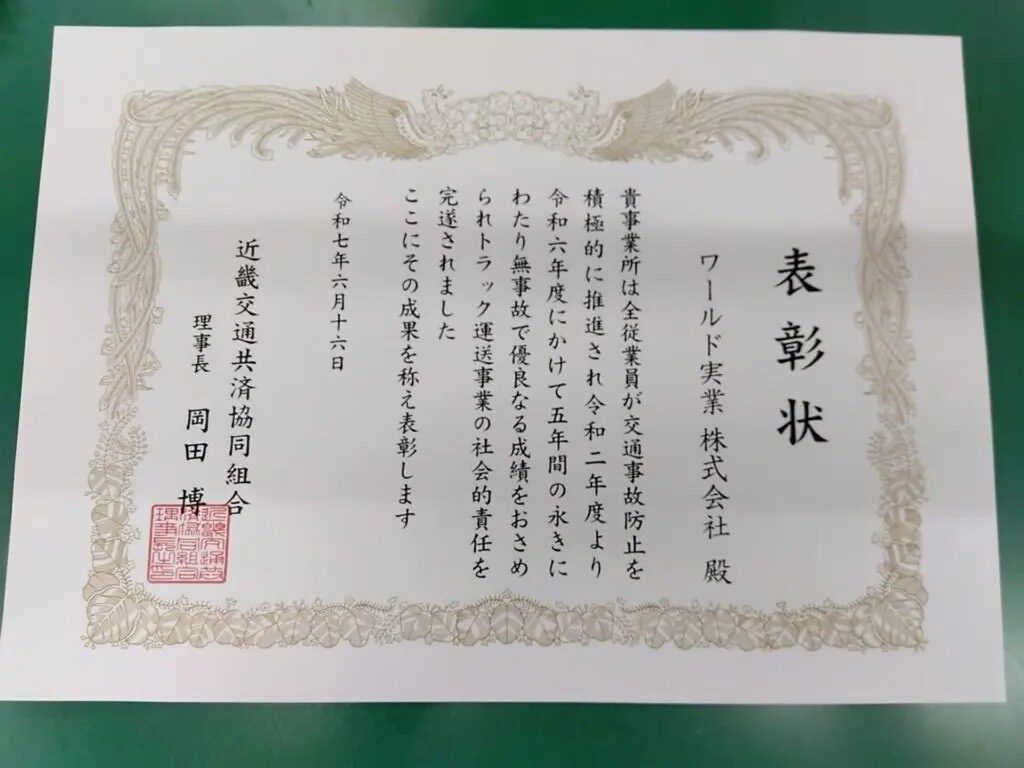 表彰状
ワールド実業 株式会社 殿
貴事業所は全従業員が交通事故防止を
積極的に推進され令和二年度より
令和六年度にかけて五年間の永きに
わたり無事故で優良なる成績をおさめ
られトラック運送事業の社会的責任を
完遂されました
ここにその成果を称え表彰します
令和七年六月十六日
近畿交通共済協同組合
理事長 岡田 博